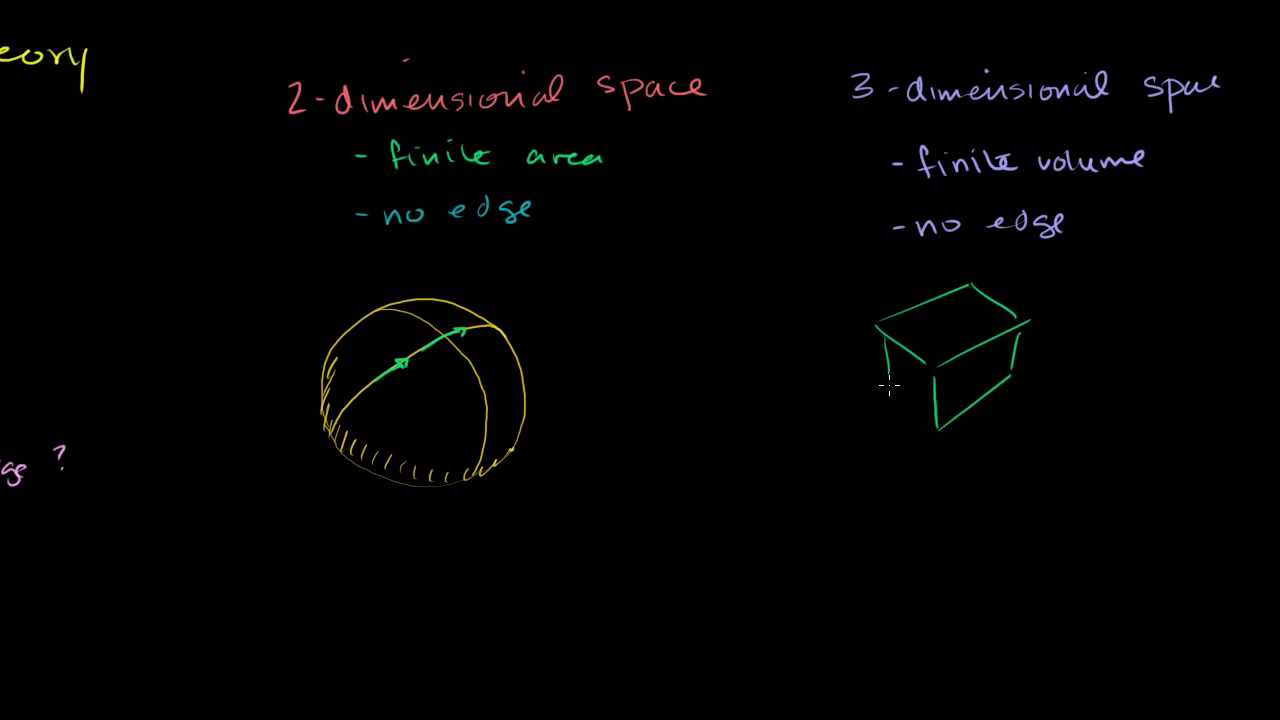 eory
2-dimensional space
- finite area
- no edge
3-dimensional space
- finite volume
- no edge
ge ?